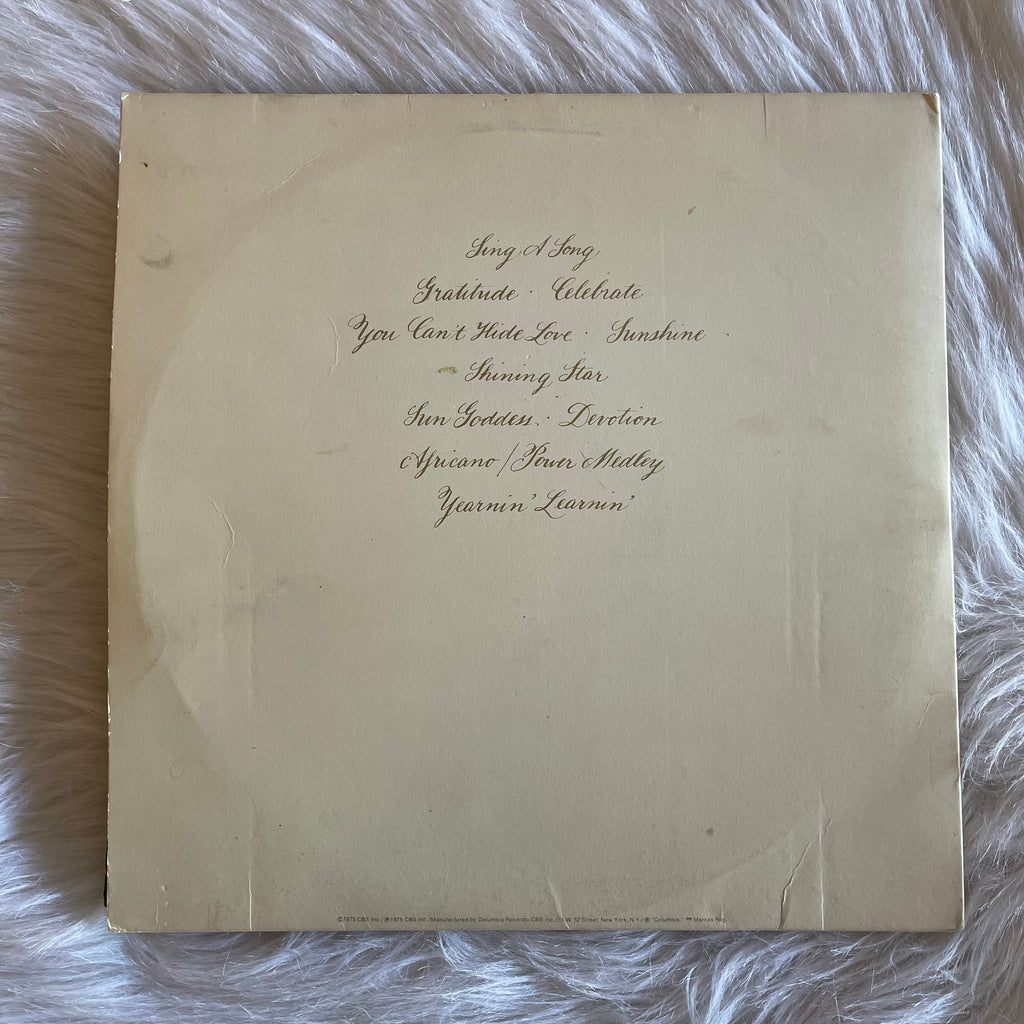 Sing A Song
Gratitude · Celebrate
You Can't Hide Love · Sunshine
Shining Star
Sun Goddess · Devotion
Africano / Power Medley
Yearnin' Learnin'
©1975 CBS Inc./℗1975 CBS Inc./Manufactured by Columbia Records/CBS Inc./51 W. 52 Street, New York, N.Y./® "Columbia," Marcas Reg.